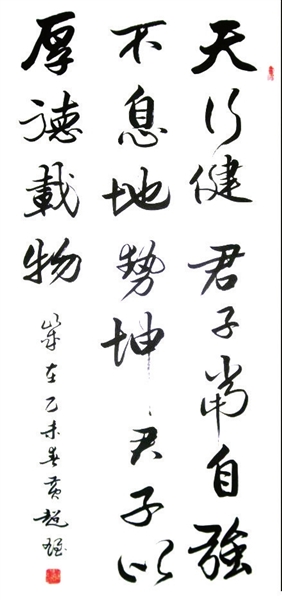 天行健君子常自強
不息地勢坤君子以
厚德載物
歲在乙未春黄超